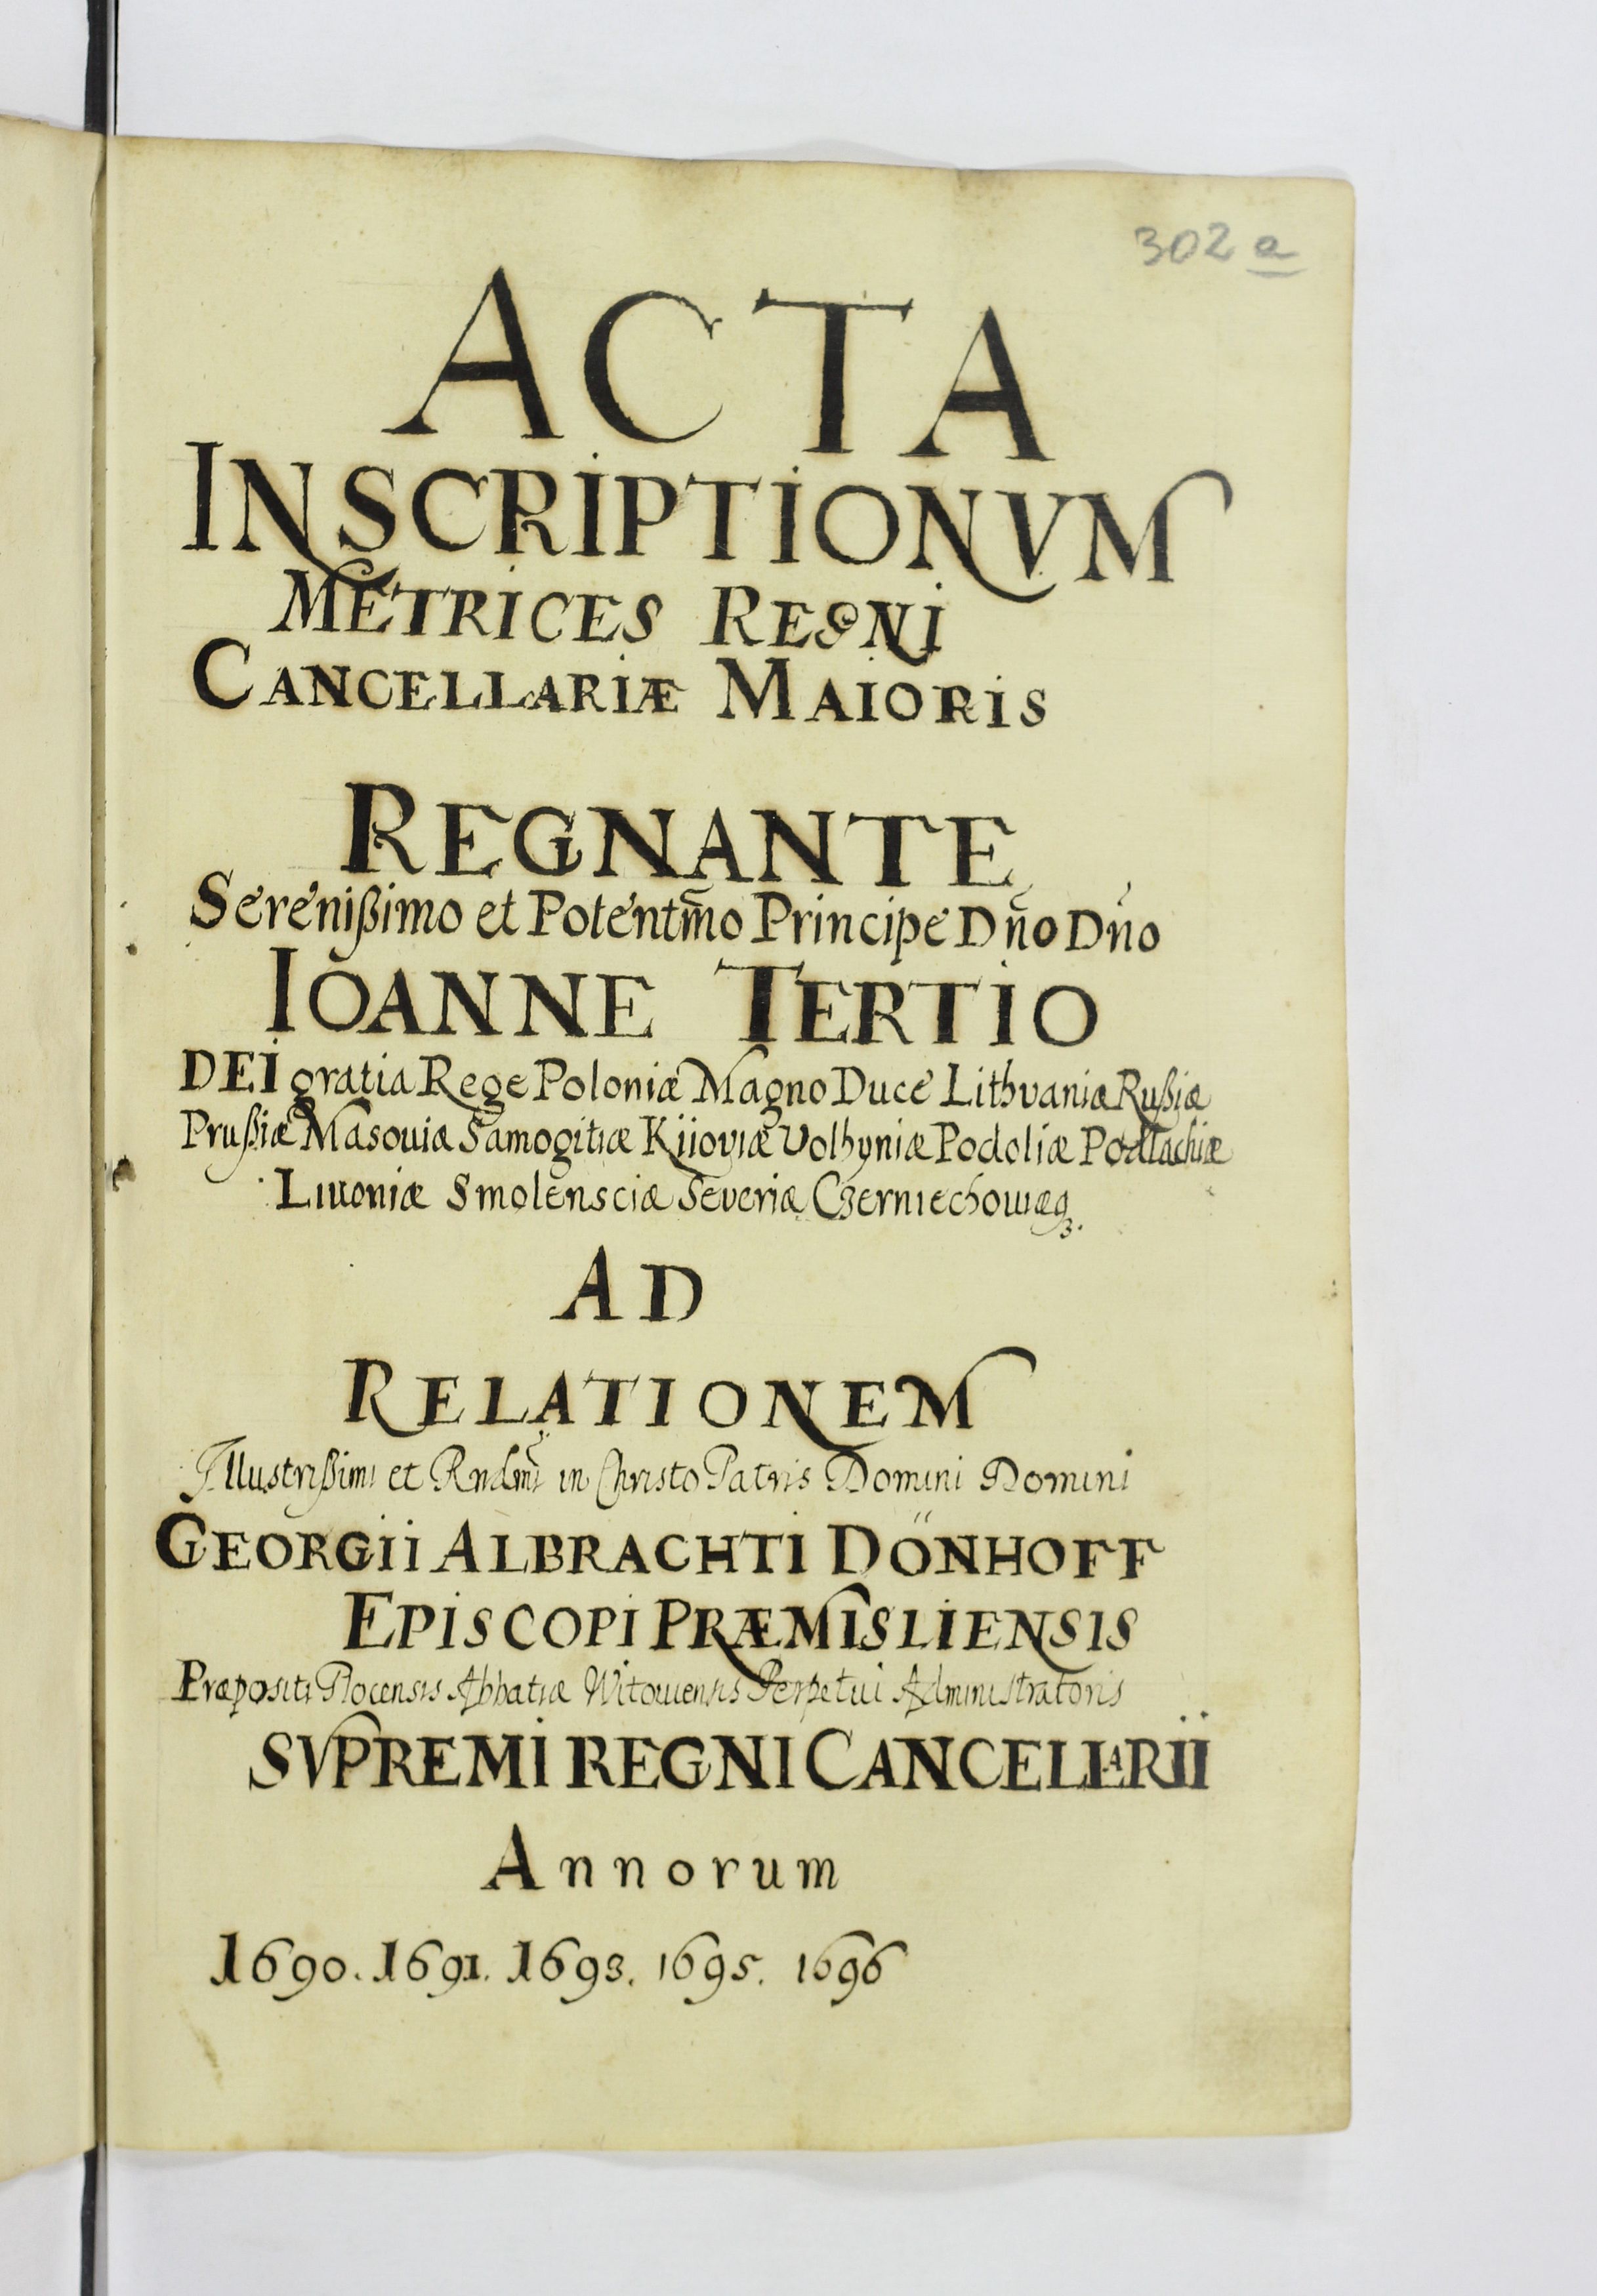 302 a
ACTA
INSCRIPTIONVM
METRICES REGNI
CANCELLARIÆ MAIORIS
REGNANTE
Serenißimo et Potentm̃o Principe Dño Dño
IOANNE TERTIO
DEI gratia Rege Poloniæ Magno Duce Lithvaniæ Rußiæ
Prußiæ Masouiæ Samogitiæ Kiioviæ Volhyniæ Podoliæ Podlachiæ
Liuoniæ Smolensciæ Severiæ Czerniechouiæq3.
AD
RELATIONEM
Illustrißimi et Rndm̃i in Christo Patris Domini Domini
GEORGII ALBRACHTI DÖNHOFF
EPISCOPI PRÆMISLIENSIS
Præpositi Plocensis Abbatiæ Witowensis Perpetui Administratoris
SVPREMI REGNI CANCELLARII
Annorum
1690. 1691. 1693. 1695. 1696